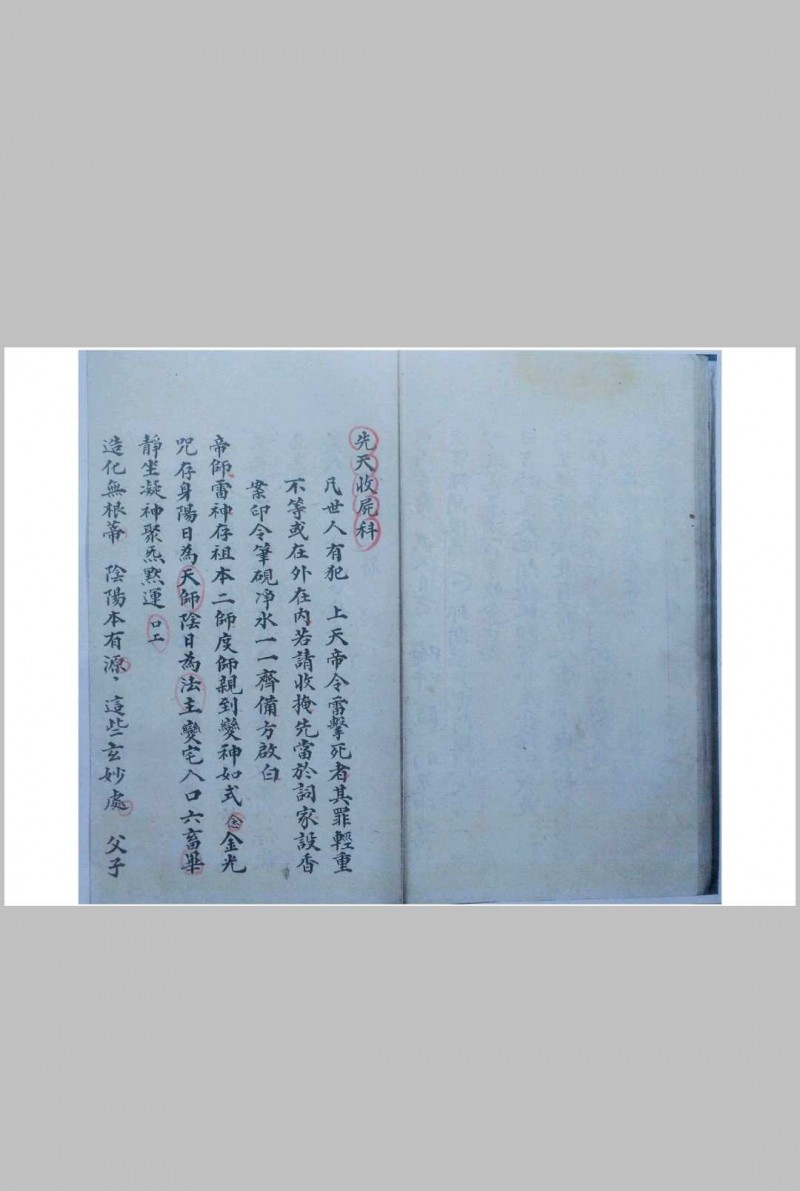 先天收屍科
凡世人有犯　上天帝令雷擊死者其罪輕重
不等或在外在內若請收掩先當於詞家設香
案印令筆硯凈水一一齊備方啟白
帝師雷神存祖本二師度師親到變神如式　金光
咒存身陽日為天師陰日為法主變宅人口六畜畢
靜坐凝神聚炁默運
造化無根蒂　陰陽本有源，這些玄妙處　父子